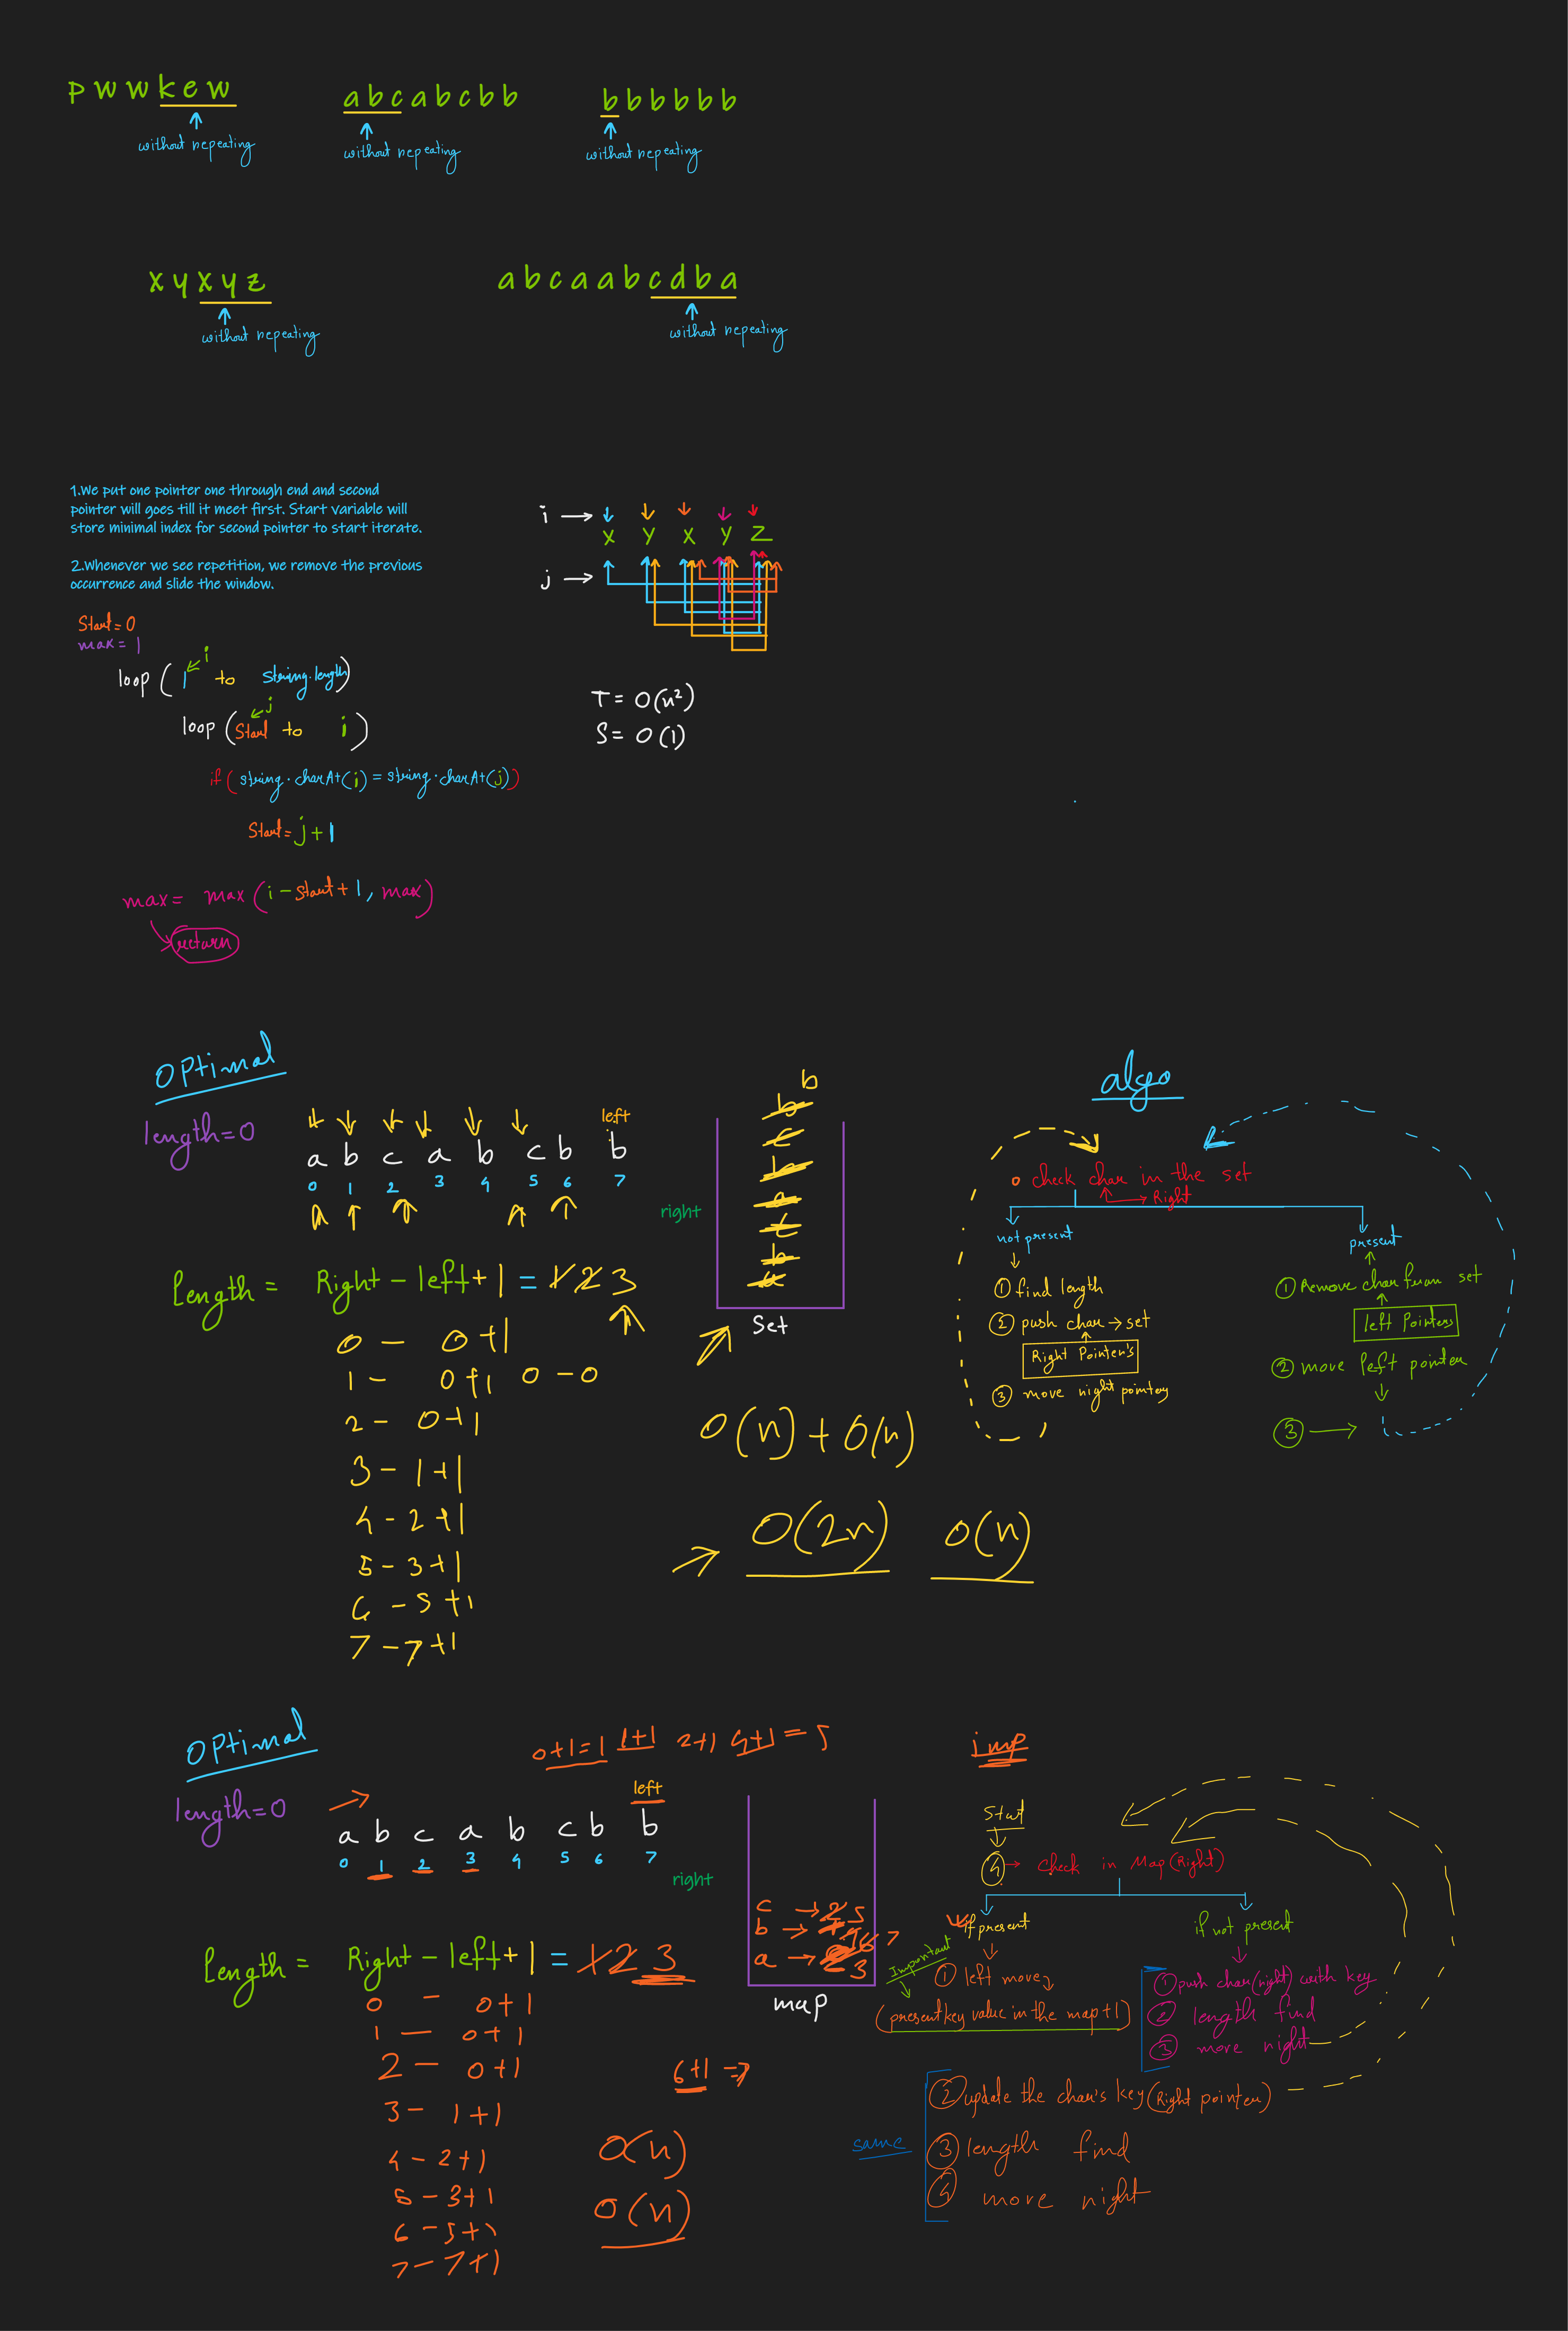 p w w k e w
without repeating
a b c a b c b b
without repeating
b b b b b b
without repeating
x y x y z
without repeating
a b c a a b c d b a
without repeating
1.We put one pointer one through end and second
pointer will goes till it meet first. Start variable will
store minimal index for second pointer to start iterate.
2.Whenever we see repetition, we remove the previous
occurrence and slide the window.
i →
x y x y z
j →
Start = 0
max = 1
i
loop ( 1 to string.length)
j
loop (Start to i )
if ( string.charAt(i) = string.charAt(j))
Start = j + 1
max = max ( i - start + 1, max)
return
T = O(n²)
S = O(1)
OPtimal
length = 0
left
a b c a b c b b
0 1 2 3 4 5 6 7
right
Length = Right - left + 1 = 1 2 3
0 - 0+1
1 - 0+1 0 - 0
2 - 0+1
3 - 1+1
4 - 2+1
5 - 3+1
6 - 5+1
7 - 7+1
b
b
c
b
a
c
b
a
Set
O(n) + O(n)
→ O(2n) O(n)
algo
check char in the set
→ Right
not present
① find length
② push char → set
Right Pointer's
③ move right pointer
present
① Remove char from set
left Pointers
② move left pointer
③ →
OPtimal
length = 0
0+1=1 1+1 2+1 4+1 = 5
left
a b c a b c b b
0 1 2 3 4 5 6 7
right
Length = Right - left + 1 = 1 2 3
0 - 0+1
1 - 0+1
2 - 0+1
3 - 1+1
4 - 2+1
5 - 3+1
6 - 5+1
7 - 7+1
6+1 = 7
O(n)
O(n)
c → 2 5
b → 1 4 6 7
a → 0 3
map
imp
Start
4 → Check in Map (Right)
if present
Important
① left move
(present key value in the map + 1)
② update the char's key (Right pointer)
③ length find
④ move right
same
if not present
① push char (right) with key
② length find
③ move right